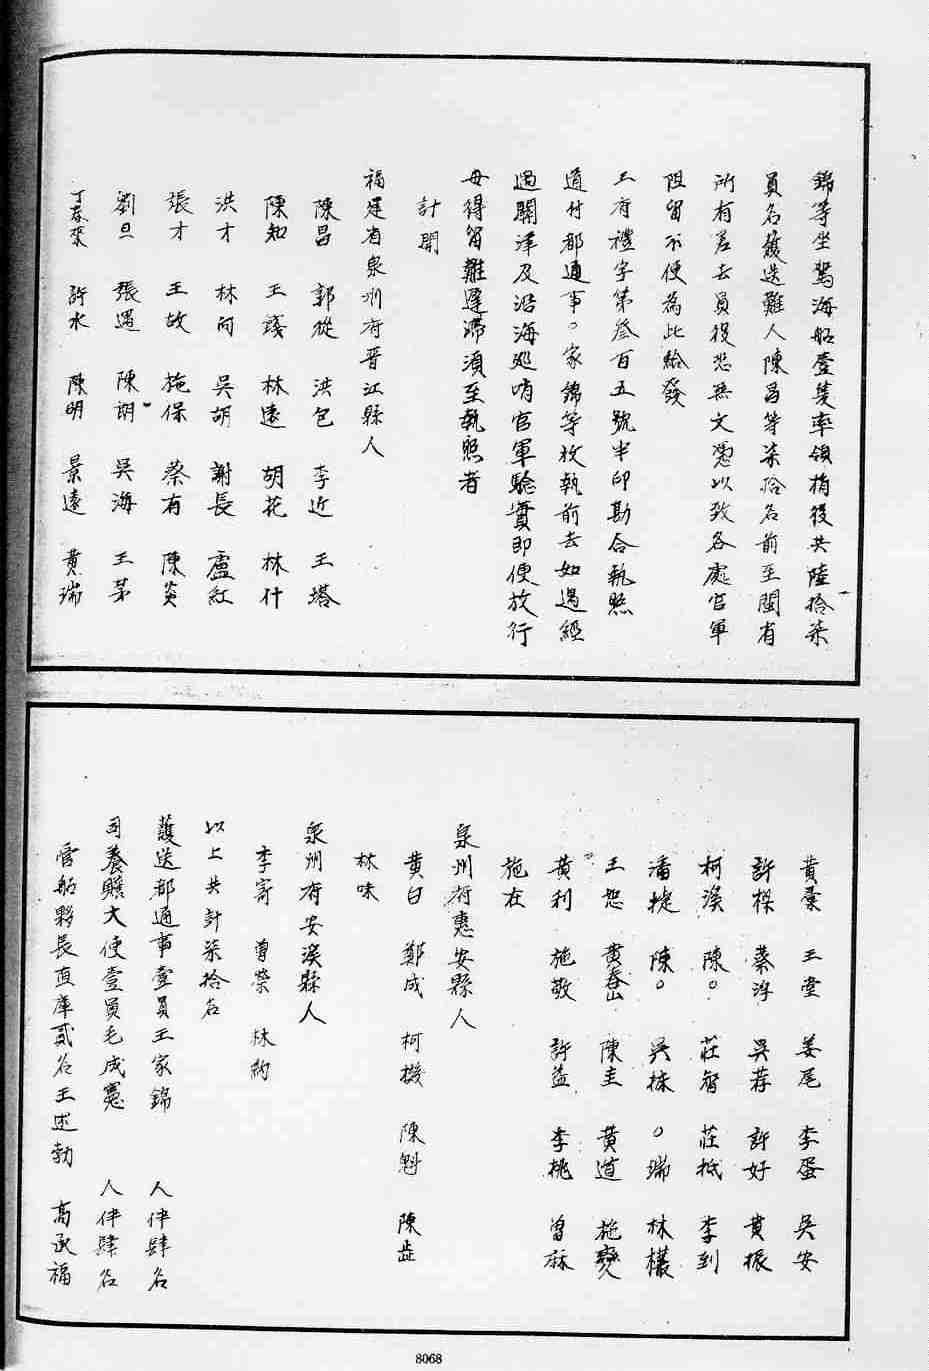 錦等坐駕海船壹隻率領梢役共陸拾柒
員名護送難人陳昌等柒拾名前至閩省
所有差去員役恐無文憑以致各處官軍
阻留不便為此給發
王府禮字第叁百五號半印勘合執照
道付都通事○家錦等收執前去如遇經
過關津及沿海巡哨官軍驗實即便放行
毋得留難遲滯須至執照者
計開
福建省泉州府晋江縣人
陳昌 郭從 洪包 李近 王塔
陳知 王錢 林遠 胡花 林什
洪才 林向 吳胡 謝長 盧紅
張才 王故 施保 蔡有 陳炎
劉旦 張遇 陳朗 吳海 王茅
丁泰來 許水 陳明 景遠 黃瑞
黃稾 王堂 姜尾 李蛋 吳安
許櫟 蔡浮 吳荐 許好 黃振
柯漢 陳○ 莊智 莊抵 李到
潘捷 陳○ 吳抹 ○瑞 林欉
王恕 黃春山 陳圭 黃道 施奕
黃利 施敬 許益 李桃 曾麻
施在
泉州府惠安縣人
黃白 鄭成 柯機 陳魁 陳益
林味
泉州府安溪縣人
李寄 曾榮 林約
以上共計柒拾名
護送都通事壹員王家錦 人伴肆名
司養贍大使壹員毛成憲 人伴肆名
管船夥長直庫貳名王述勃 高承福
8068